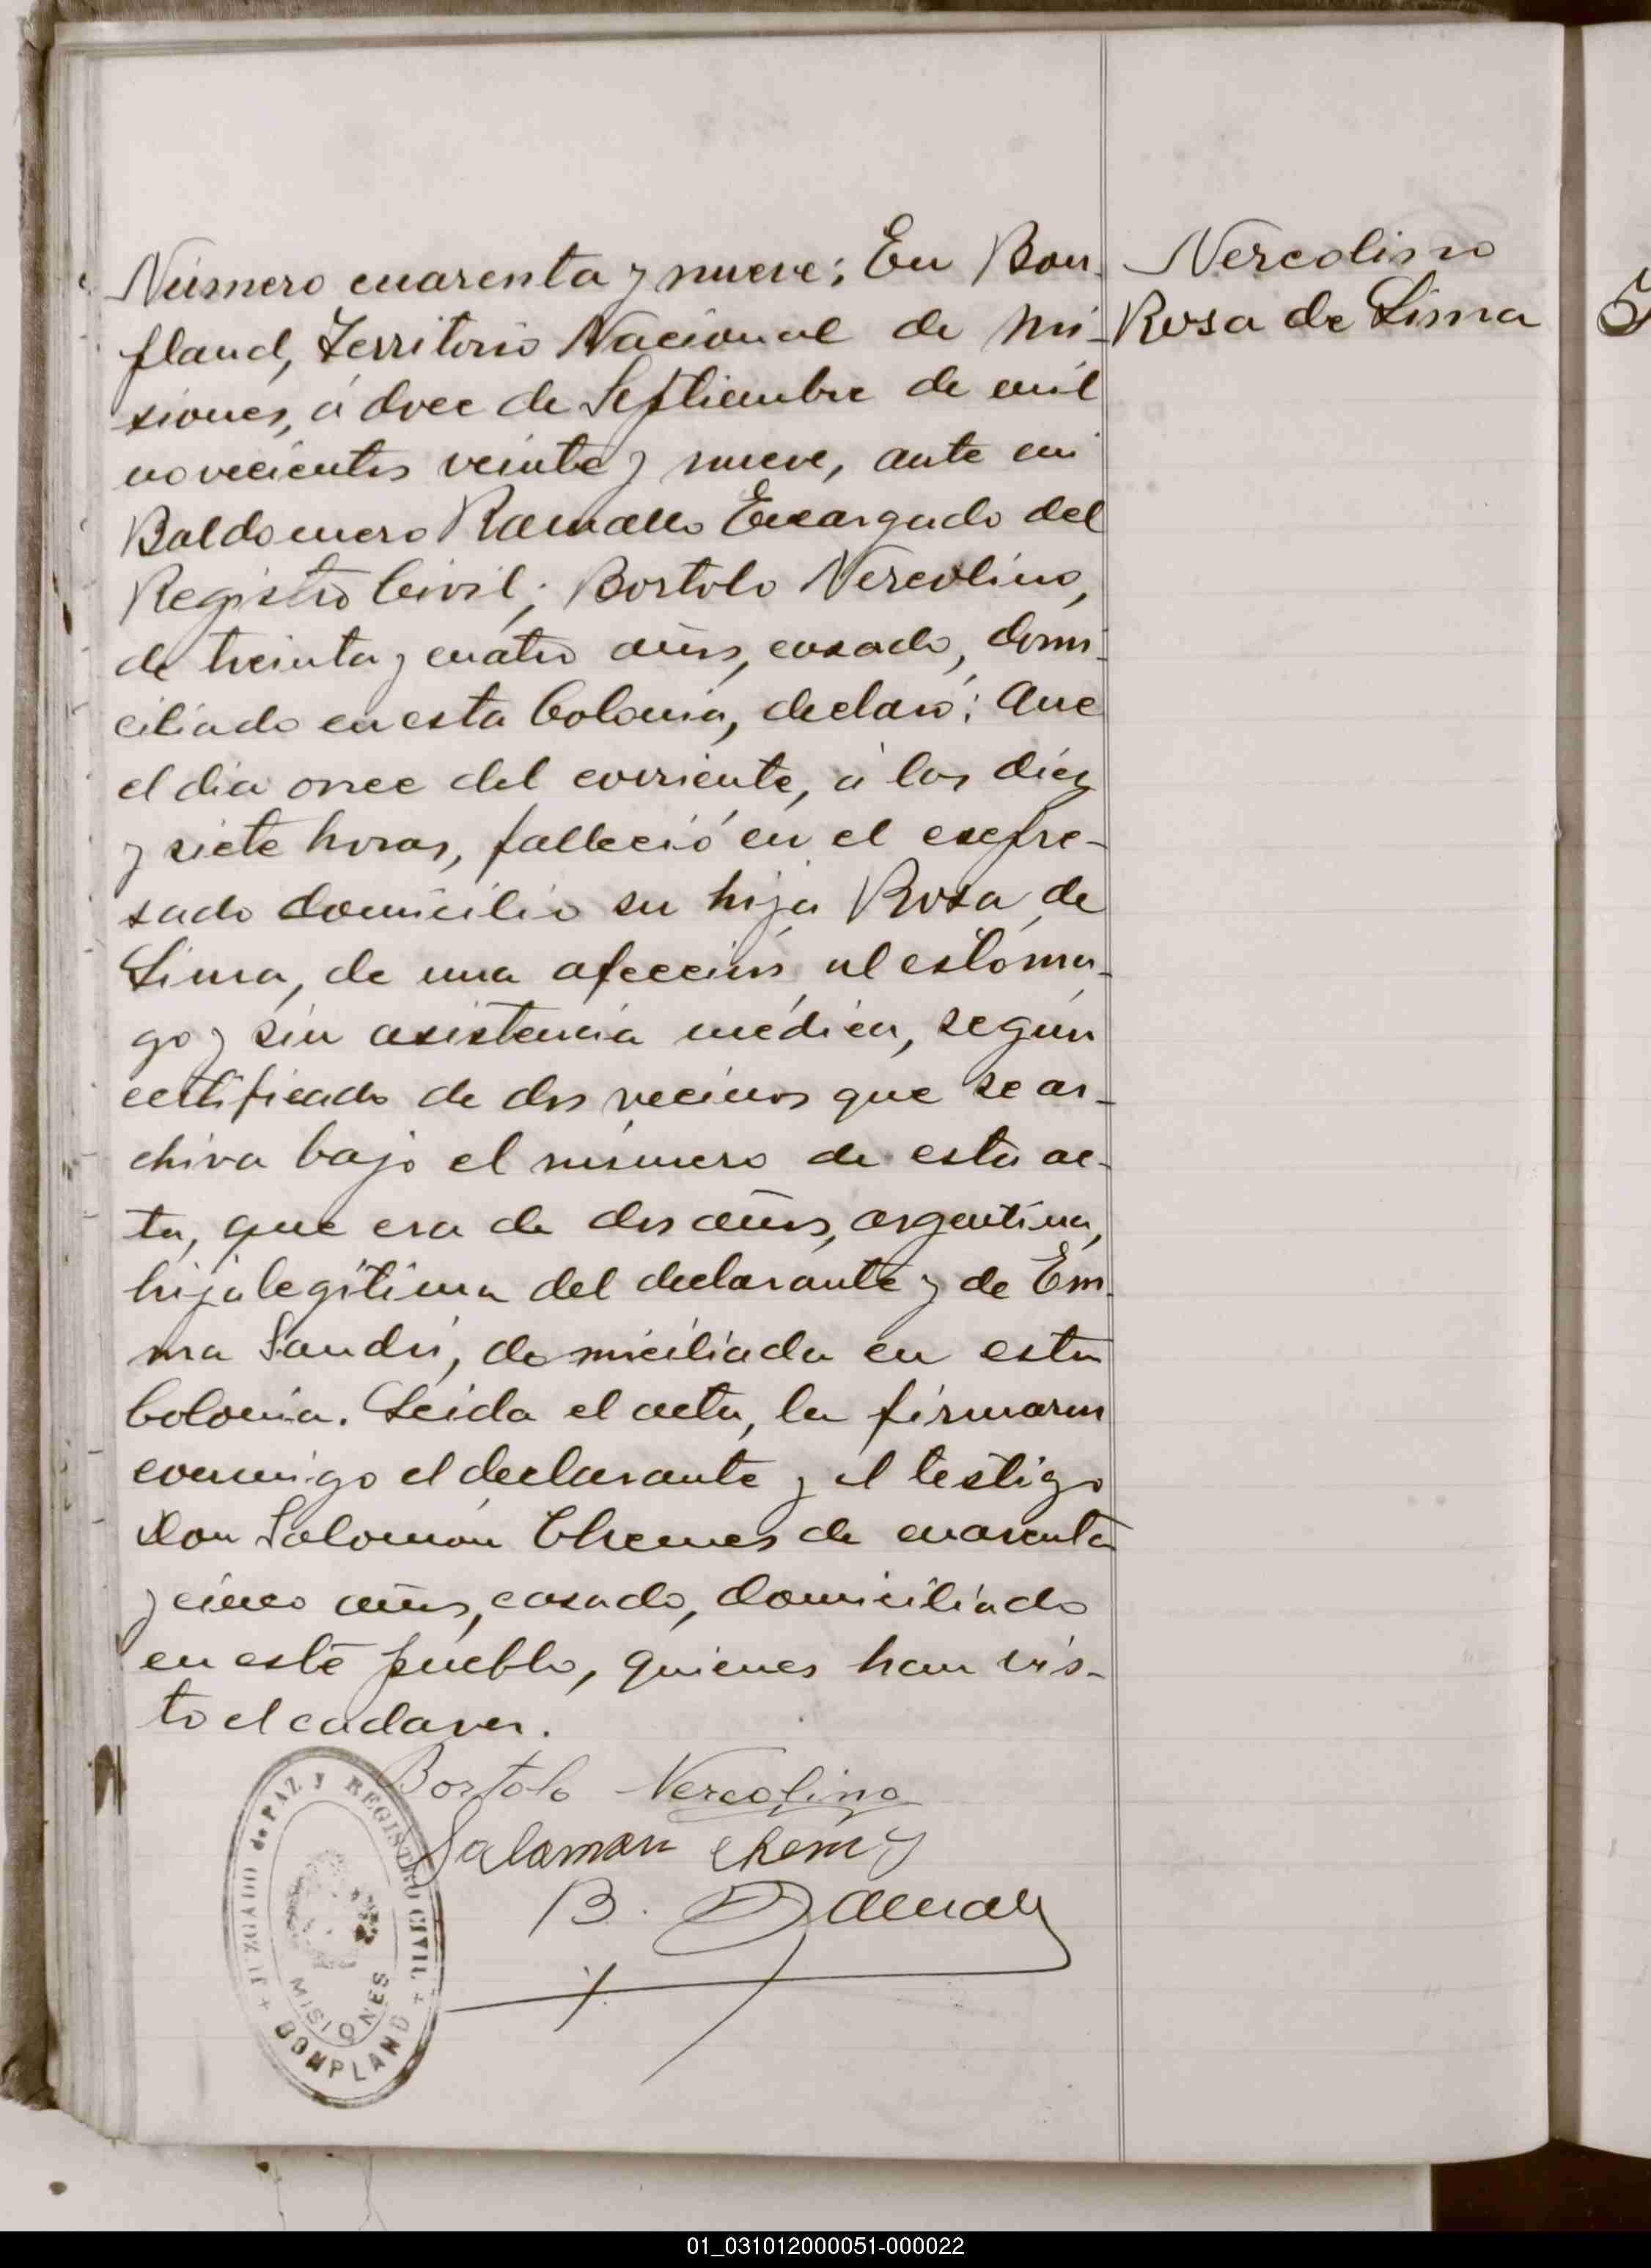 Número cuarenta y nueve; En Bon-
pland, Territorio Nacional de Mi-
siones, á doce de Septiembre de mil
novecientos veinte y nueve, ante mi
Baldomero Ramallo Encargado del
Registro Civil; Bortolo Vercolino,
de treinta y cuatro años, casado, domi-
ciliado en esta Colonia, declaró: Que
el dia once del corriente, á las diez
y siete horas, falleció en el expre-
sado domicilio su hija Rosa de
Lima, de una afección al estóma-
go y sin asistencia médica, según
certificado de dos vecinos que se ar-
chiva bajo el número de esta ac-
ta, que era de dos años, argentina,
hija legítima del declarante y de Em-
ma Sandri, domiciliada en esta
Colonia. Leida el acta, la firmaron
conmigo el declarante y el testigo
Don Salomón Chemes de cuarenta
y cinco años, casado, domiciliado
en este pueblo, quienes han vis-
to el cadaver.
Bortolo Vercolino
Salamon chemes
B. Ramallo
JUZGADO de PAZ y REGISTRO CIVIL
MISIONES
BOMPLAND
Vercolino
Rosa de Lima
01_031012000051-000022